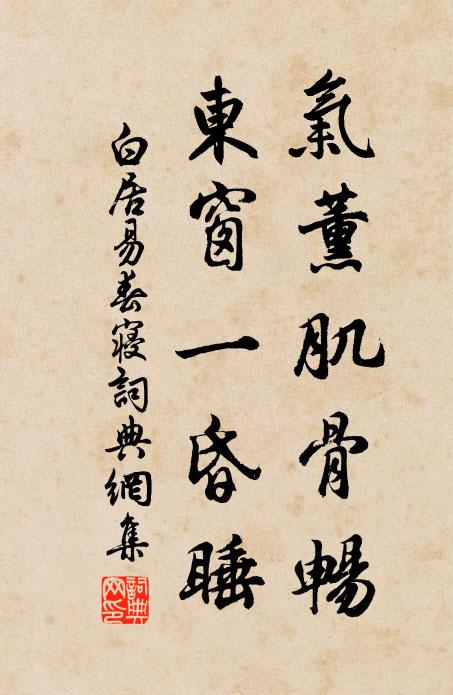 氣薰肌骨暢
東窗一昏睡
白居易春寢詞典網集
詞典網印